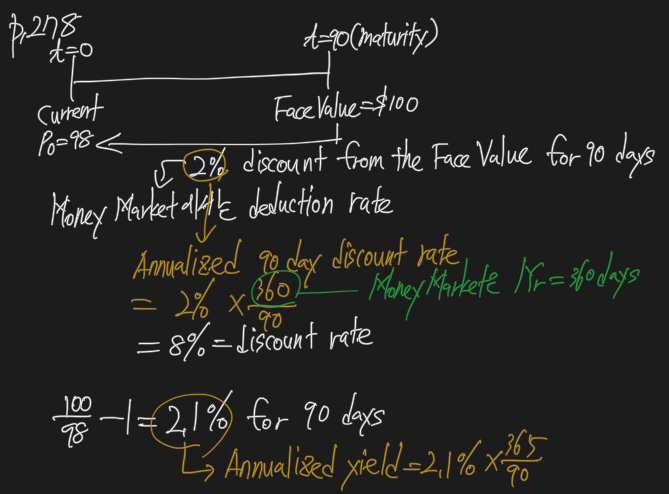 p.278
t=0
t=90(maturity)
Current
Face Value=$100
P₀=98
2% discount from the Face Value for 90 days
Money Market에서는 deduction rate
Annualized 90 day discount rate
= 2% × 360/90
Money Market은 1Yr=360days
= 8% = discount rate
100/98 - 1 = 2.1% for 90 days
Annualized yield = 2.1% × 365/90